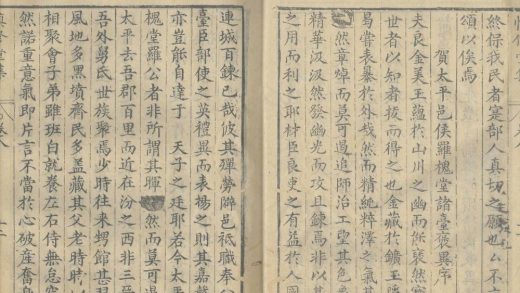 終保我民者寔部人真切之願也么不
頌以俟焉
賀太平邑侯羅槐堂諸臺褒異序
夫良金美玉蘊於山川之幽而能褎然
世者以知者拔而得之也金藏於鑛玉
易嘗表㬥於外哉然而精純粹澤之氣
然章焯而莫可遏追師治工望其色
精華汲汲然發幽光而攻且鍊焉非以其
之用而利之耶材臣良吏之有益於人國
連城百鍊已哉彼其殫勞僻邑祗職奉
臺臣部使之英禮異而表楊之則其嘉
亦豈能自達于 天子之廷耶若今太平
槐堂羅公者非所謂其暉 然而莫可
太平去吾郡百里而近在汾之西非三
吾外舅氏世族聚焉少時往來甥舘甚
風地多黒墳齊民多盖藏其父老時時
相聚會子弟雖班白就養左右侍無怠
然諾重意氣即片言不當於心破産奮